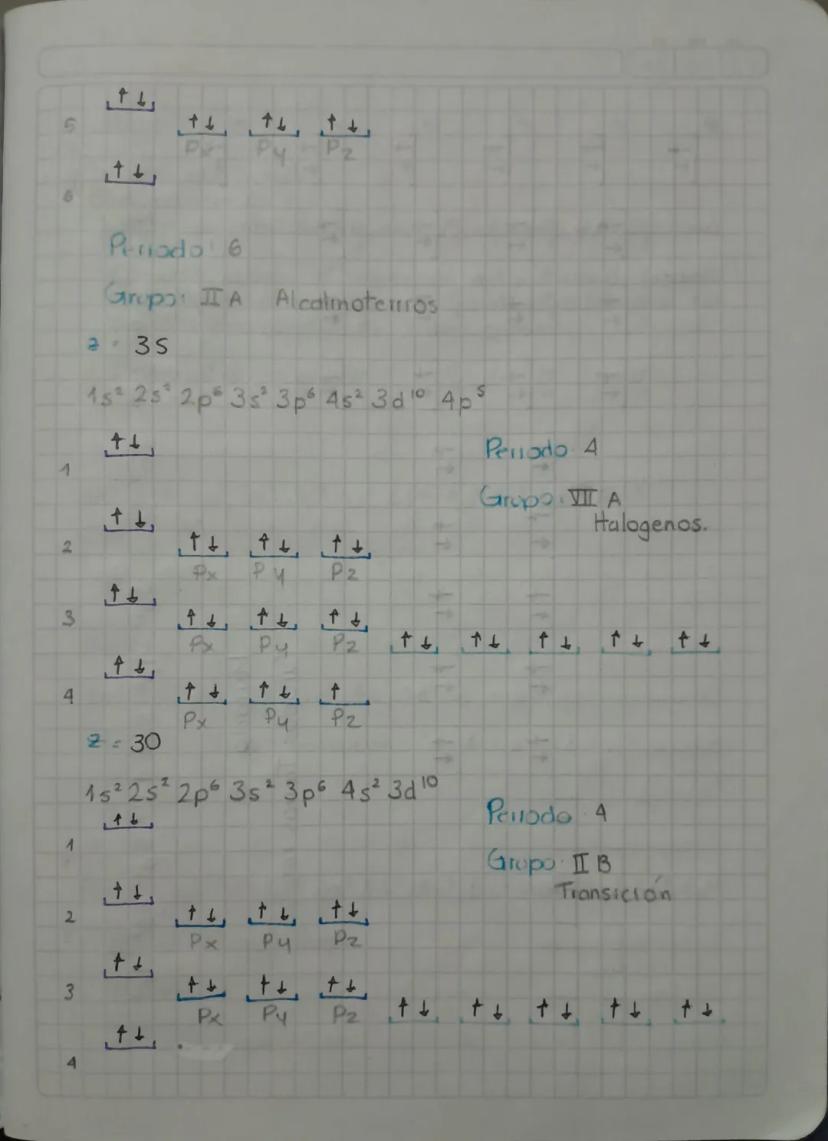 ↑↓
5 ↑↓ ↑↓ ↑↓
Px Py Pz
↑↓
6
Periodo 6
Grupo: II A Alcalinoterreos
z = 35
1s² 2s² 2p⁶ 3s² 3p⁶ 4s² 3d¹⁰ 4p⁵
↑↓
Periodo 4
1
Grupo: VII A
↑↓ Halogenos.
2 ↑↓ ↑↓ ↑↓
Px Py Pz
↑↓
3 ↑↓ ↑↓ ↑↓
Px Py Pz ↑↓ ↑↓ ↑↓ ↑↓ ↑↓
↑↓
4 ↑↓ ↑↓ ↑
Px Py Pz
z = 30
1s² 2s² 2p⁶ 3s² 3p⁶ 4s² 3d¹⁰
↑↓ Periodo 4
1
Grupo II B
↑↓ Transición
2 ↑↓ ↑↓ ↑↓
Px Py Pz
↑↓
3 ↑↓ ↑↓ ↑↓
Px Py Pz ↑↓ ↑↓ ↑↓ ↑↓ ↑↓
↑↓
4